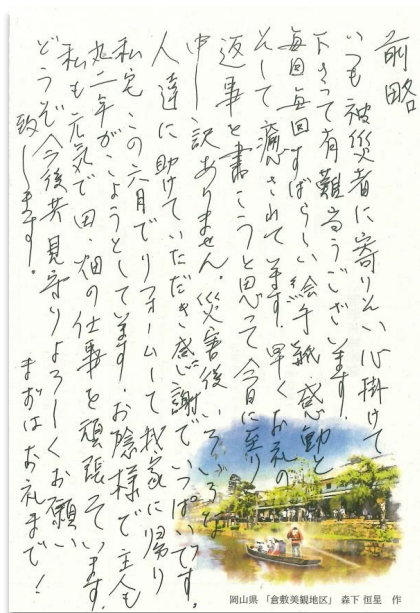 前略
いつも被災者に寄りそい心掛けて
下さって有難うございます。
毎回毎回すばらしい絵手紙、感動と
そして癒されています。早くお礼の
返事を書こうと思って今日に至り
申し訳ありません。災害後いろいろな
人達に助けていただき感謝でいっぱいです。
私宅この六月でリフォームして我家に帰り
丸二年がこようとしています。お陰様で主人も
私も元気で田、畑の仕事を頑張っています。
どうぞ今後共見守りよろしくお願い
致します。
まずはお礼まで!
岡山県 「倉敷美観地区」 森下 恒星 作